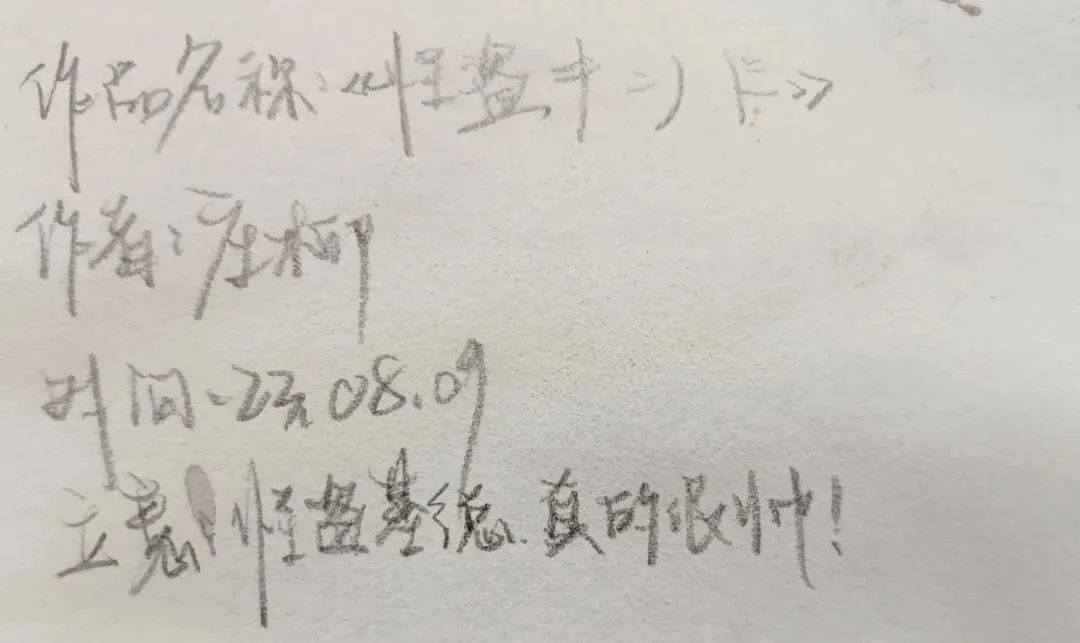 作品名称:《怪盗卡》
作者:柳
时间.23.08.09
立意:怪盗基德.真的很帅!